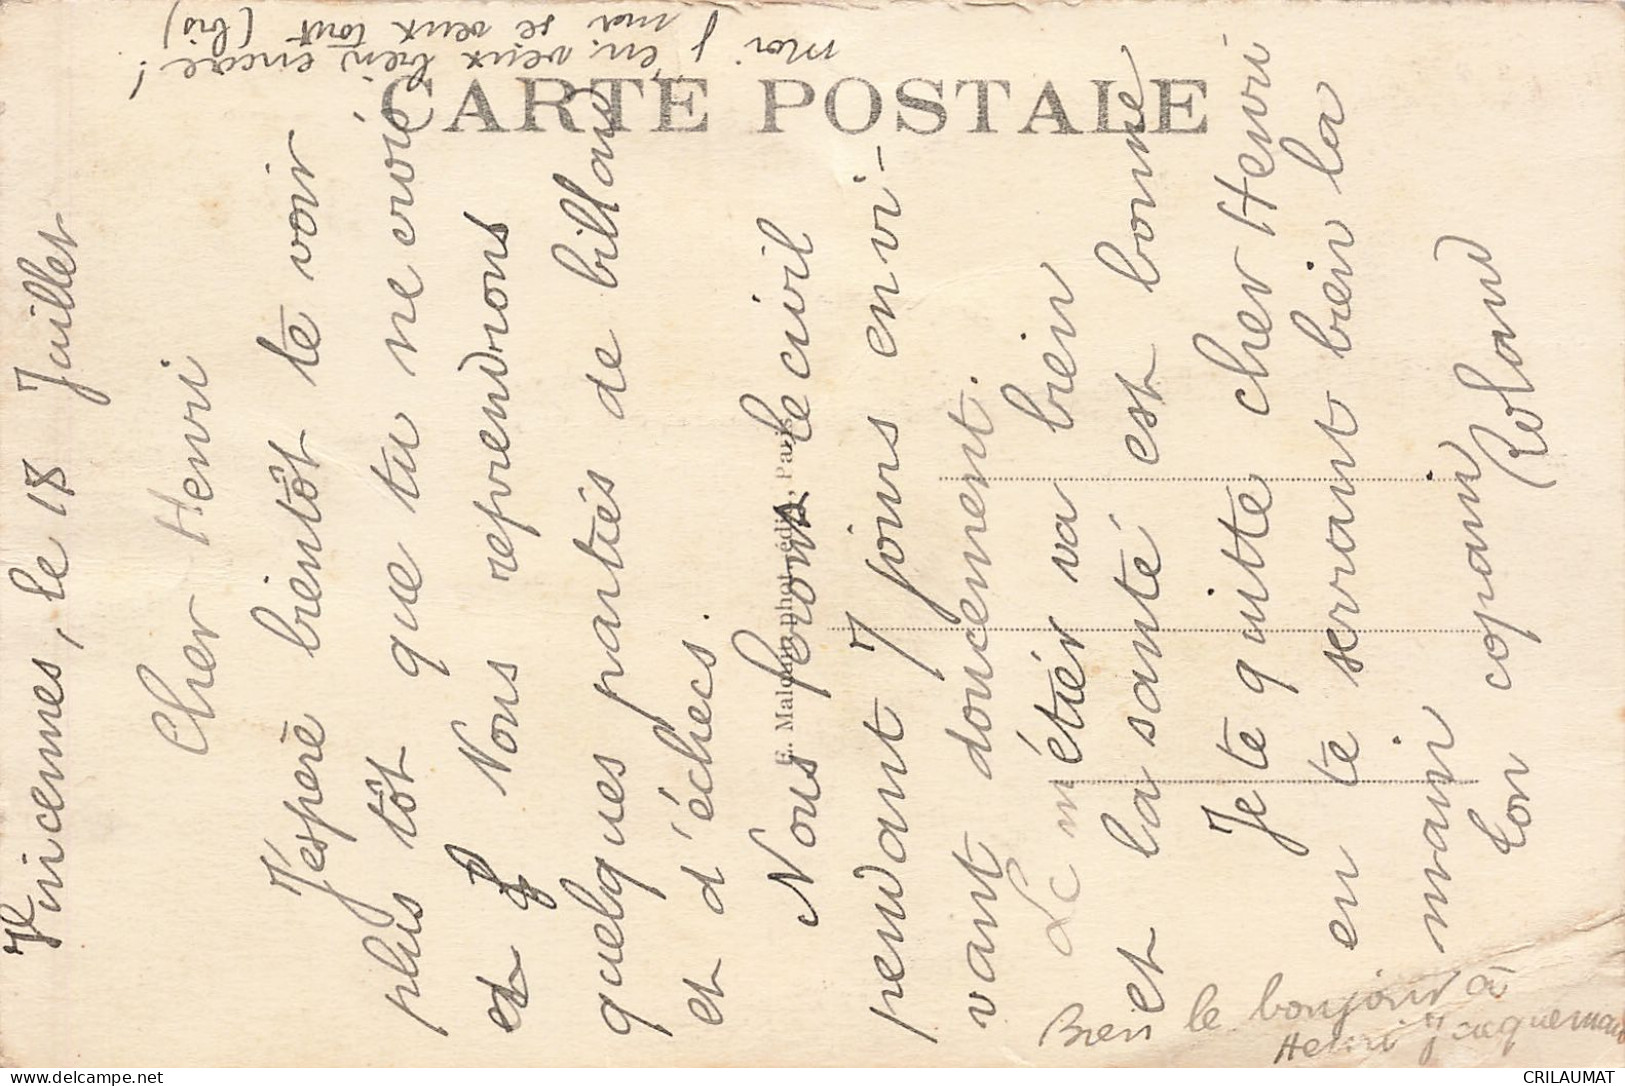 Vincennes, le 18 Juillet
Cher Henri
J'espère bientôt te voir
plus tôt que tu ne crois
et Nous reprendrons
quelques partiés de billard
et d'échecs.
Nous ferons le civil
pendant 7 jours envi-
vant doucement.
Le métier va bien
et la santé est bonne
Je te quitte cher Henri
en te serrant bien la
main
ton copain
Roland
Bien le bonjour à
Henri Jacquemain
moi j'en veux bien encore !
moi je veux tout (bis)
CARTE POSTALE
E. Malcuit, phot.-édit., Paris
CRILAUMAT